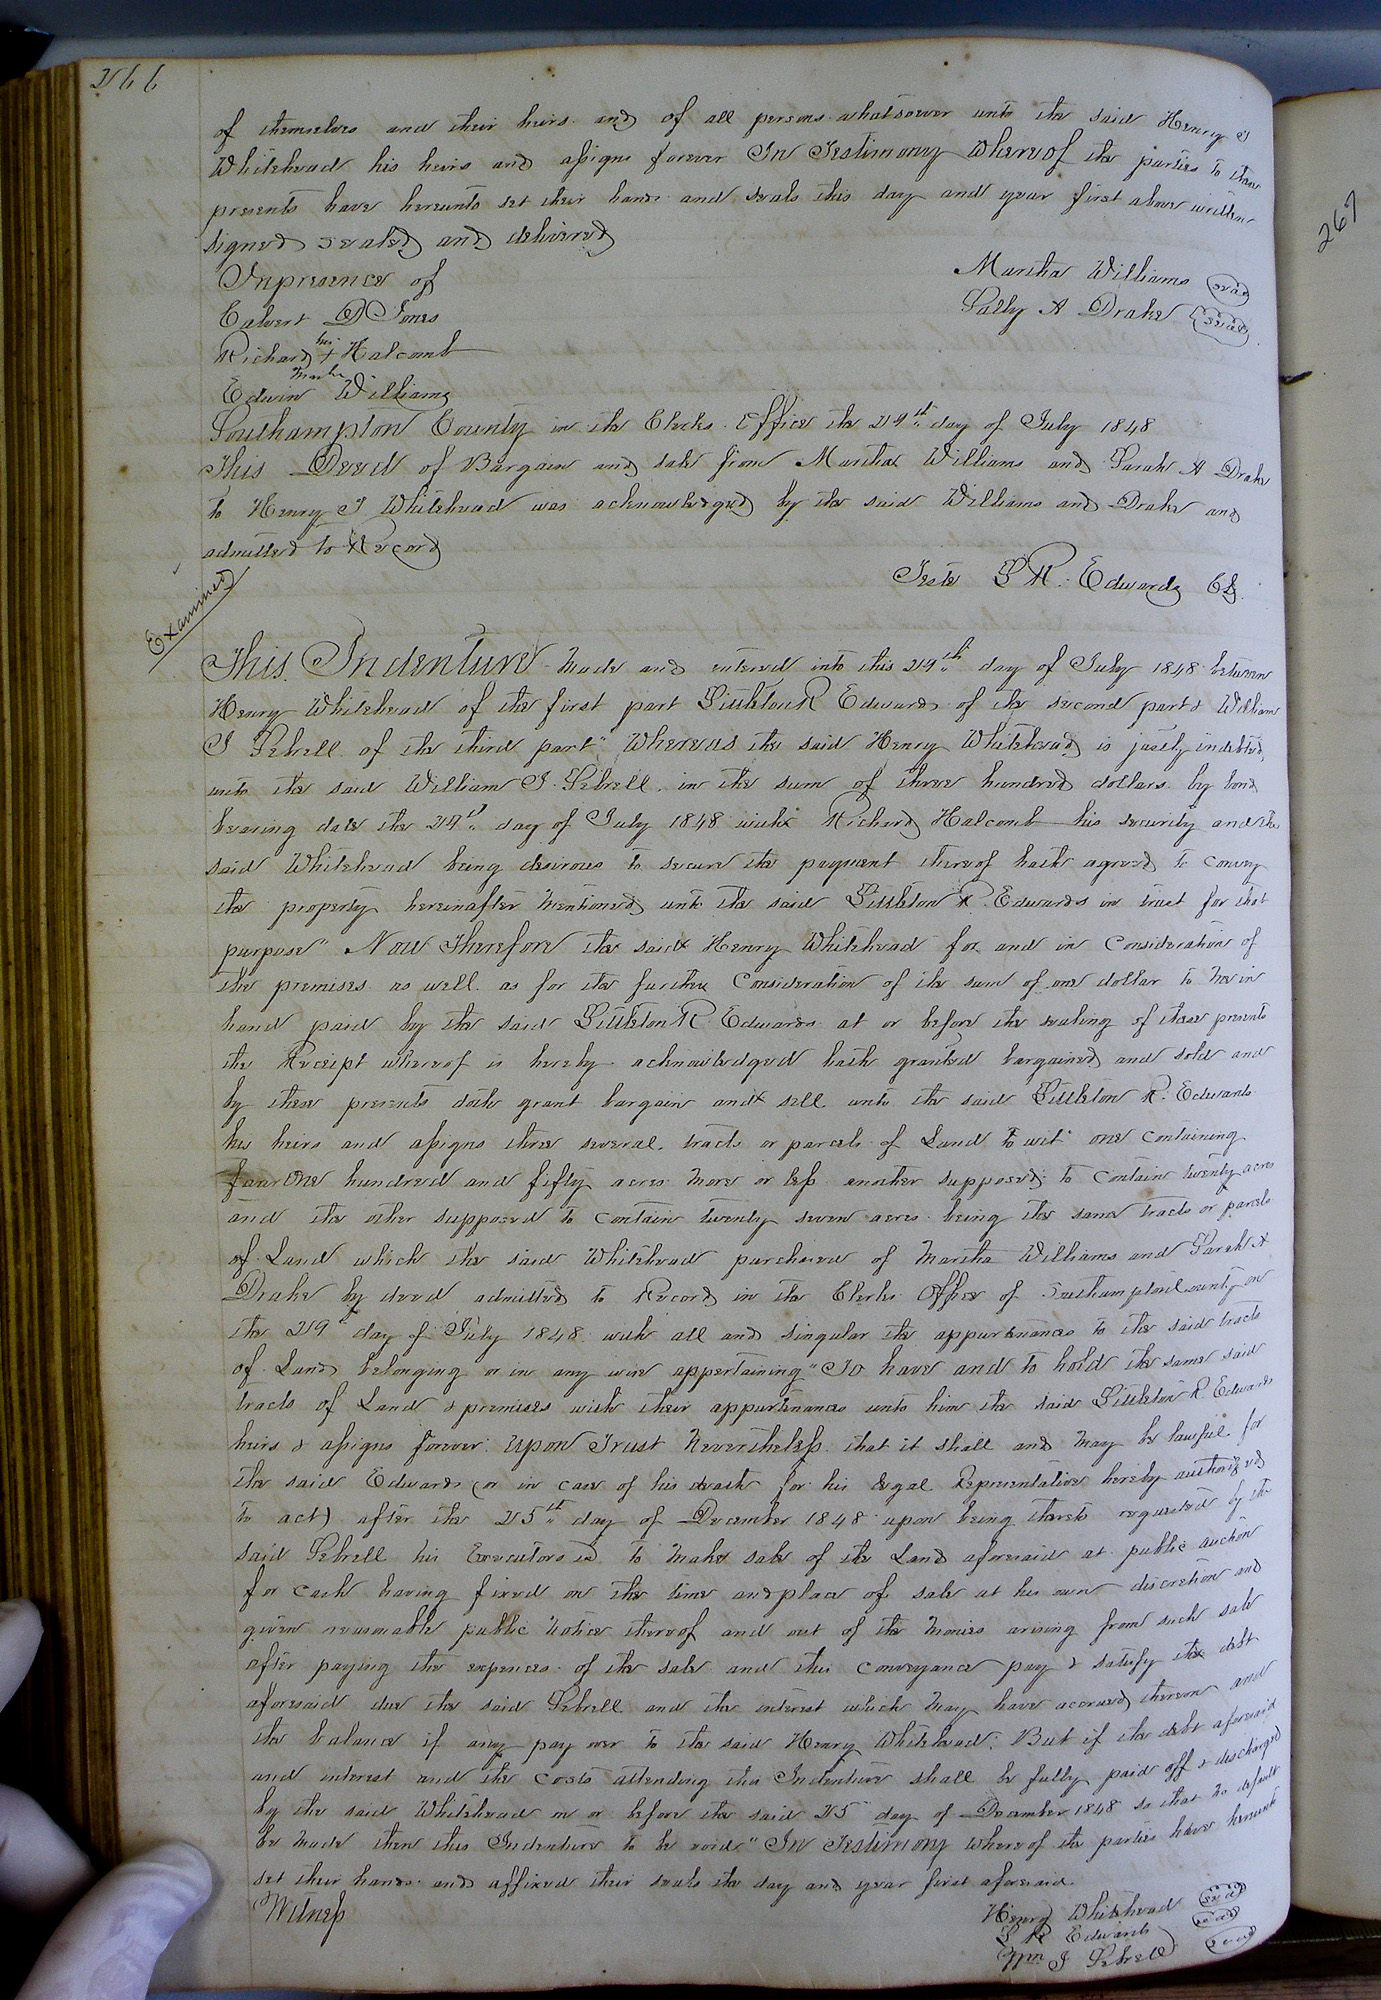 266
of themselves and their heirs and of all persons whatsoever unto the said Henry J
Whitehead his heirs and assigns forever In Testimony Whereof the parties to these
presents have hereunto set their hands and seals this day and year first above written
signed sealed and delivered
In presence of
Martha Williams seal
Calvert D Jones
Sally A Drake seal
Richard his + mark Halcomb
Edwin Williams
Southampton County in the Clerks Office the 29th day of July 1848
This Deed of Bargain and sale from Martha Williams and Sarah A Drake
to Henry J Whitehead was acknowledged by the said Williams and Drake and
admitted to Record
Teste L R. Edwards Clk.
Examined
This Indenture Made and entered into this 29th day of July 1848 between
Henry Whitehead of the first part Littleton R Edwards of the second part & William
J Sebrell of the third part" Whereas the said Henry Whitehead is justly indebted
unto the said William J. Sebrell in the sum of three hundred dollars by bond
bearing date the 29th day of July 1848 with Richard Halcomb his security and the
said Whitehead being desirous to secure the payment thereof hath agreed to convey
the property hereinafter mentioned unto the said Littleton R. Edwards in trust for that
purpose" Now Therefore the said Henry Whitehead for and in Consideration of
the premises as well as for the further Consideration of the sum of one dollar to me in
hand paid by the said Littleton R Edwards at or before the sealing of these presents
the Receipt whereof is hereby acknowledged hath granted bargained and sold and
by these presents doth grant bargain and sell unto the said Littleton R. Edwards
his heirs and assigns three several tracts or parcels of Land to wit one containing
One hundred and fifty acres more or less another supposed to contain twenty acres
and the other supposed to contain twenty seven acres being the same tracts or parcels
of Land which the said Whitehead purchased of Martha Williams and Sarah A
Drake by deed admitted to Record in the Clerks Office of Southampton County on
the 29th day of July 1848 with all and singular the appurtenances to the said tracts
of Land belonging or in any wise appertaining" To have and to hold the same said
tracts of Land & premises with their appurtenances unto him the said Littleton R Edwards
heirs & assigns forever Upon Trust Nevertheless that it shall and may be lawful for
the said Edwards (or in case of his death for his legal Representative hereby authorized
to act) after the 25th day of December 1848 upon being thereto requested by the
said Sebrell his Executors &c to make sale of the Land aforesaid at public auction
for cash having fixed on the time and place of sale at his own discretion and
given reasonable public notice thereof and out of the monies arising from such sale
after paying the expences of the sale and this conveyance pay & satisfy the debt
aforesaid due the said Sebrell and the interest which may have accrued thereon and
the balance if any pay over to the said Henry Whitehead. But if the debt aforesaid
and interest and the costs attending this Indenture shall be fully paid off & discharged
by the said Whitehead on or before the said 25th day of December 1848 so that no default
be made then this Indenture to be void" In Testimony whereof the parties have hereunto
set their hands and affixed their seals the day and year first aforesaid
Witness
Henry Whitehead seal
L R Edwards seal
Wm J Sebrell seal
267